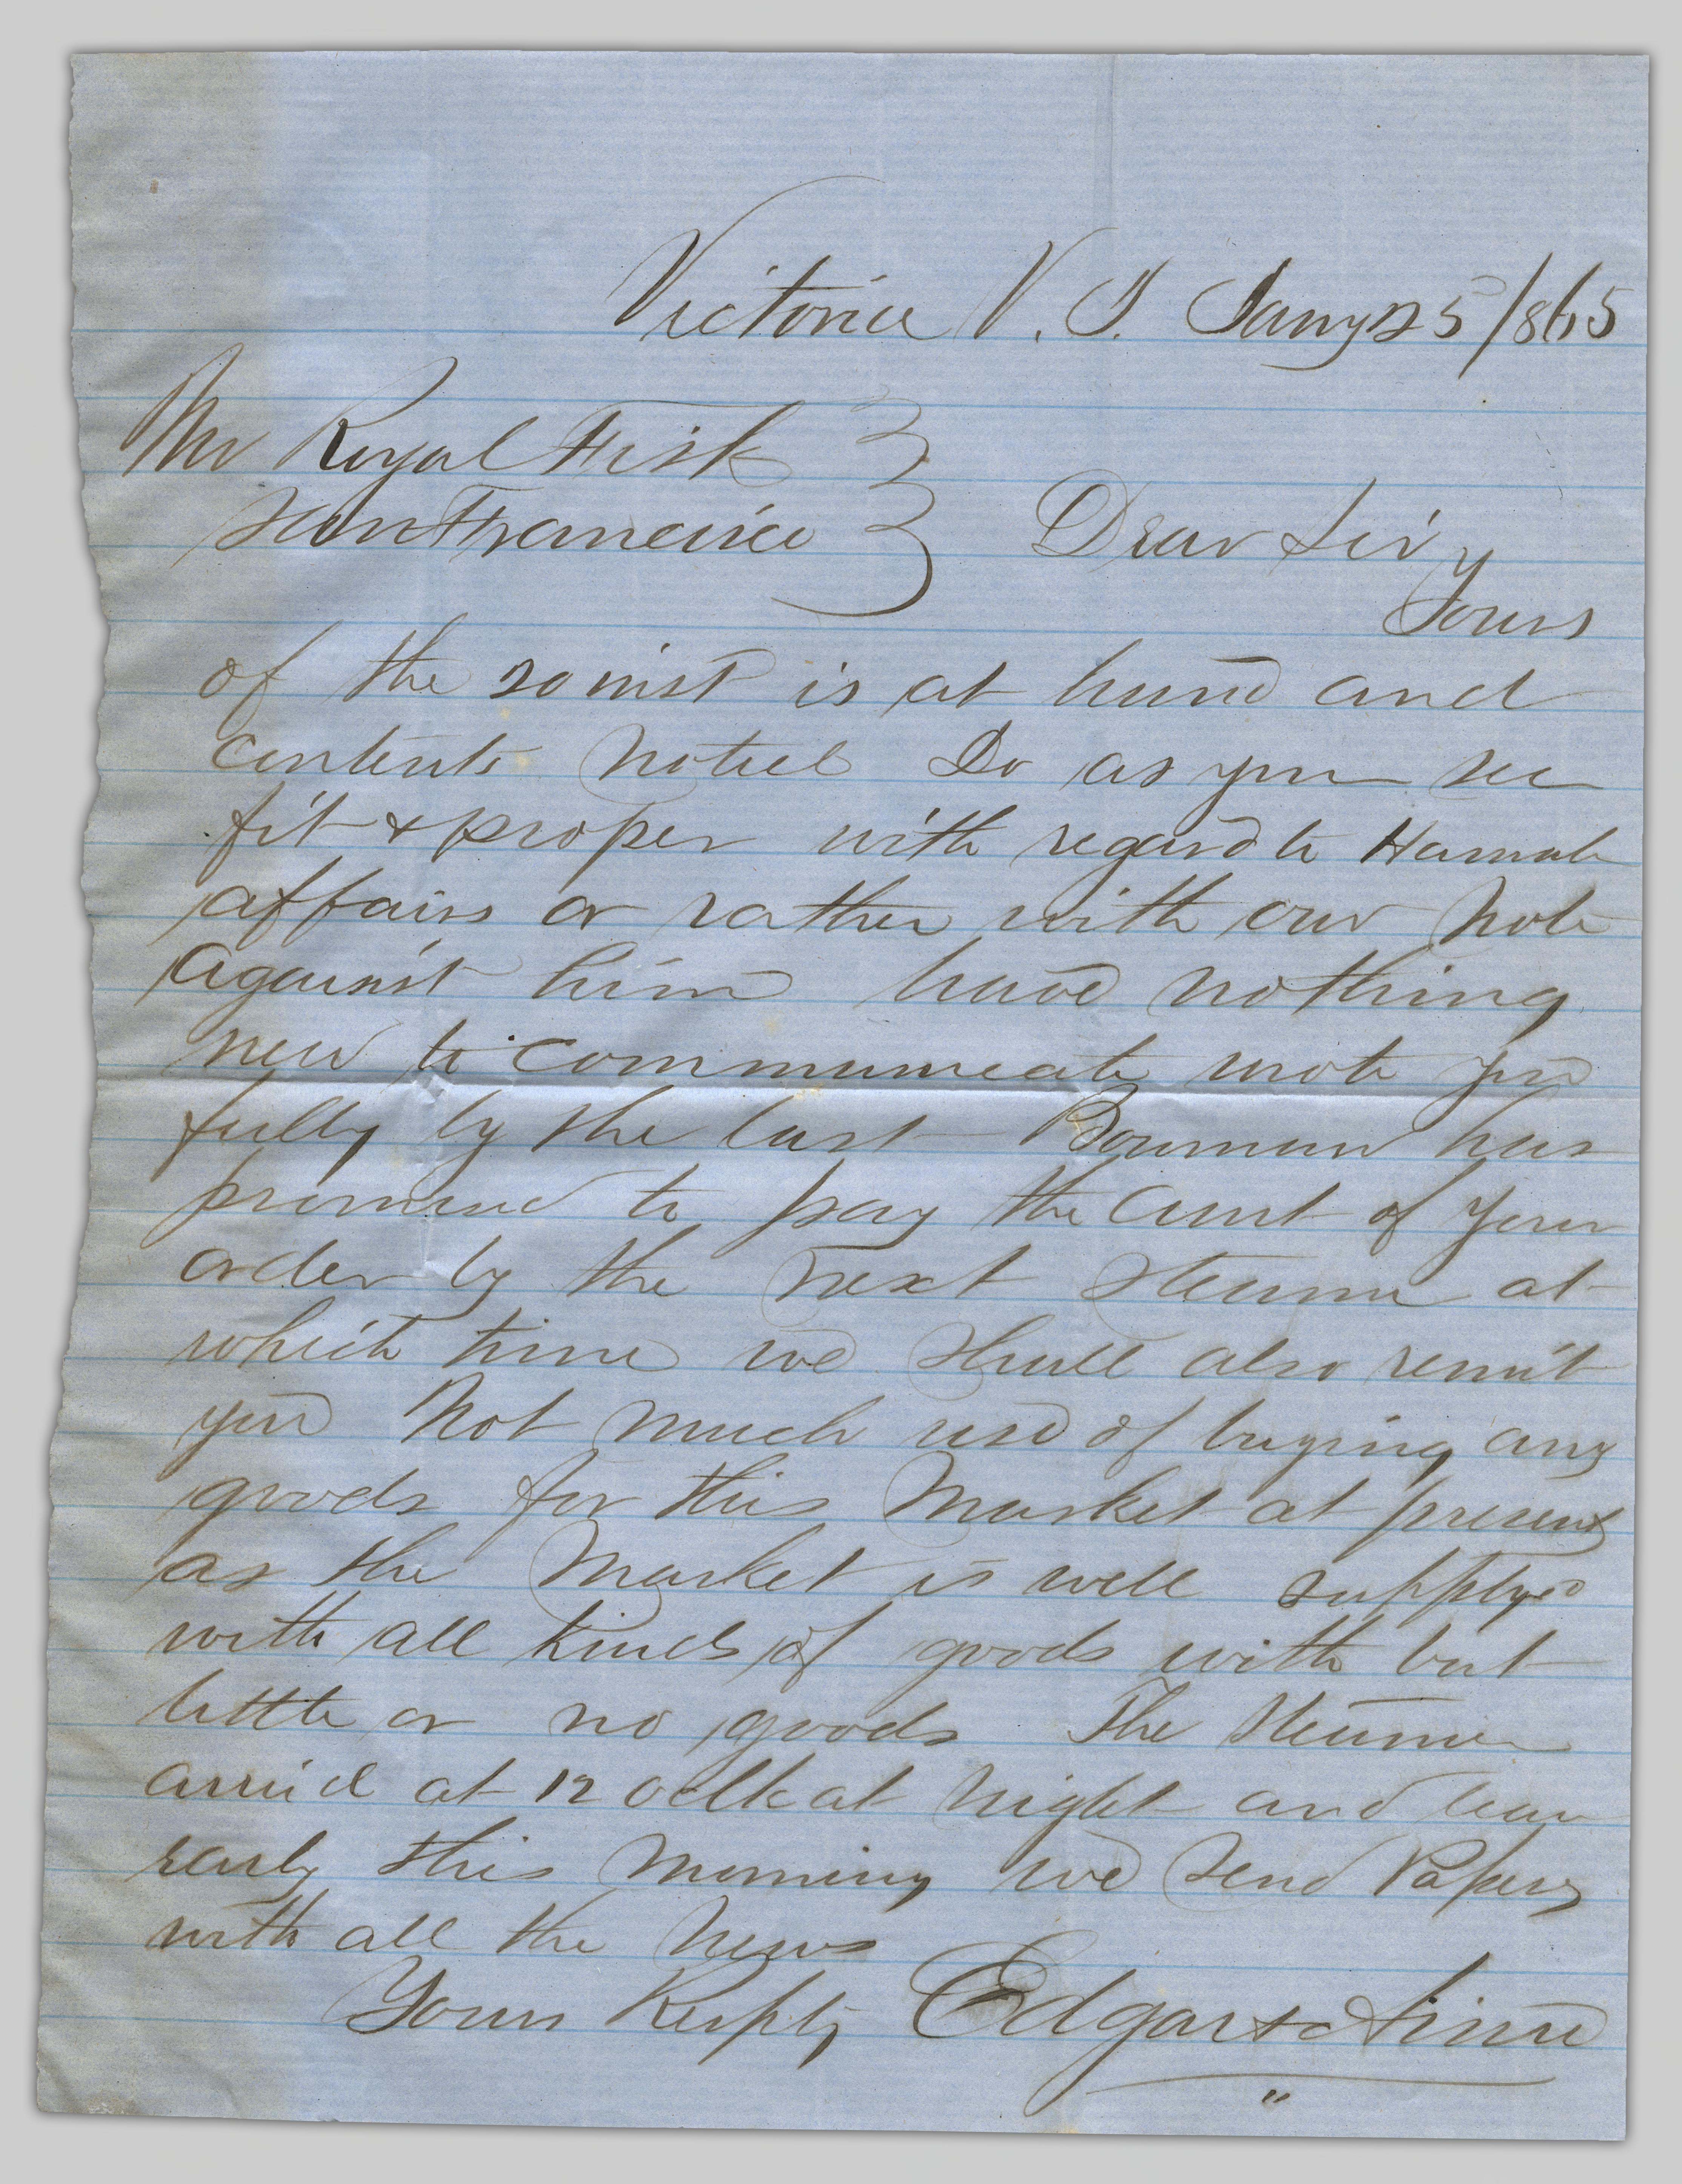 Victoria V. I. Jany 25/865
Mr Royal Fisk
San Francisco Dear Sir,
Yours
of the 20 inst is at hand and
contents noted Do as you see
fit & proper with regard to
affairs or rather with our Note
against him have nothing
new to communicate wrote you
fully by the last Bowman has
promised to pay the amt of your
order by the next Steamer at
which time we shall also remit
you Not much use of buying any
goods for this Market at present
as the Market is well supplyed
with all kinds of goods with but
little or no goods The Steamer
arrivd at 12 oclk at Night and leave
early this morning we send Papers
with all the News
Yours Respty Edgar &